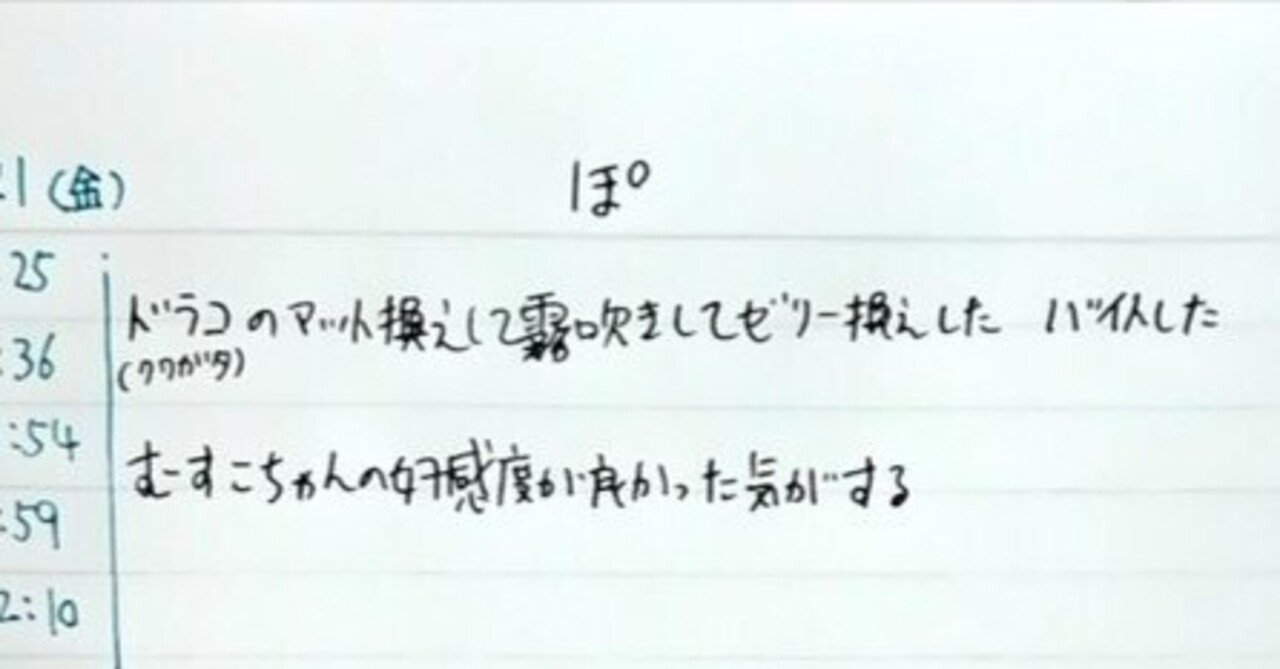 21(金)
ぽ
25
ドラコのマット換えして霧吹きしてゼリー換えした バイトした
:36
(クワガタ)
:54
むーすこちゃんの好感度が良かった気がする
:59
2:10